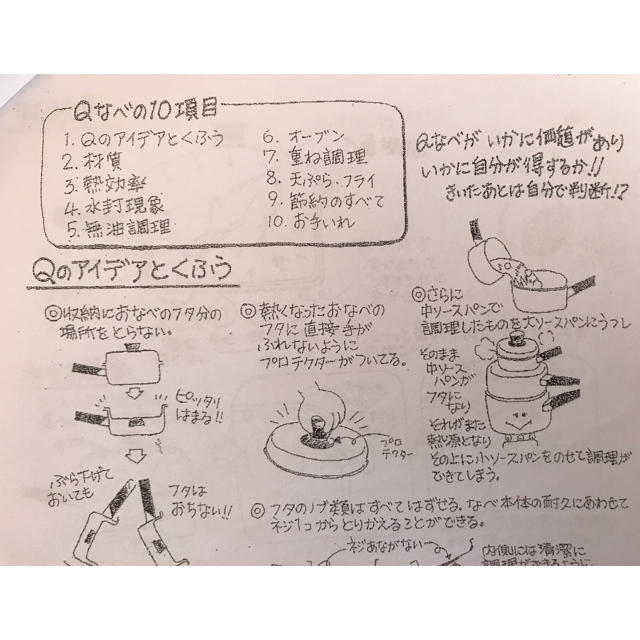 Qなべの10項目
1. Qのアイデアとくふう
2. 材質
3. 熱効率
4. 水封現象
5. 無油調理
6. オーブン
7. 重ね調理
8. 天ぷら、フライ
9. 節納のすべて
10. お手いれ
Qなべが いかに価値があり
いかに自分が得するか!!
きいたあとは自分で判断!?
Qのアイデアとくふう
◎収納におなべのフタ分の
場所をとらない。
ピッタリ
はまる!!
ぶら下げて
おいても
フタは
おちない!!
◎熱くなったおなべの
フタに直接手が
ふれないように
プロテクターがついてる。
プロ
テクター
◎さらに
中ソースパンで
調理したものを大ソースパンにうつし
そのまま
中ソース
パンが
フタに
なり
それがまた
熱源となり
その上に小ソースパンをのせて調理が
できてしまう。
◎フタのノブ類はすべてはずせる。なべ本体の耐久にあわせて
ネジ1コからとりかえることができる。
ネジあながない
内側には清潔に
調理ができるように